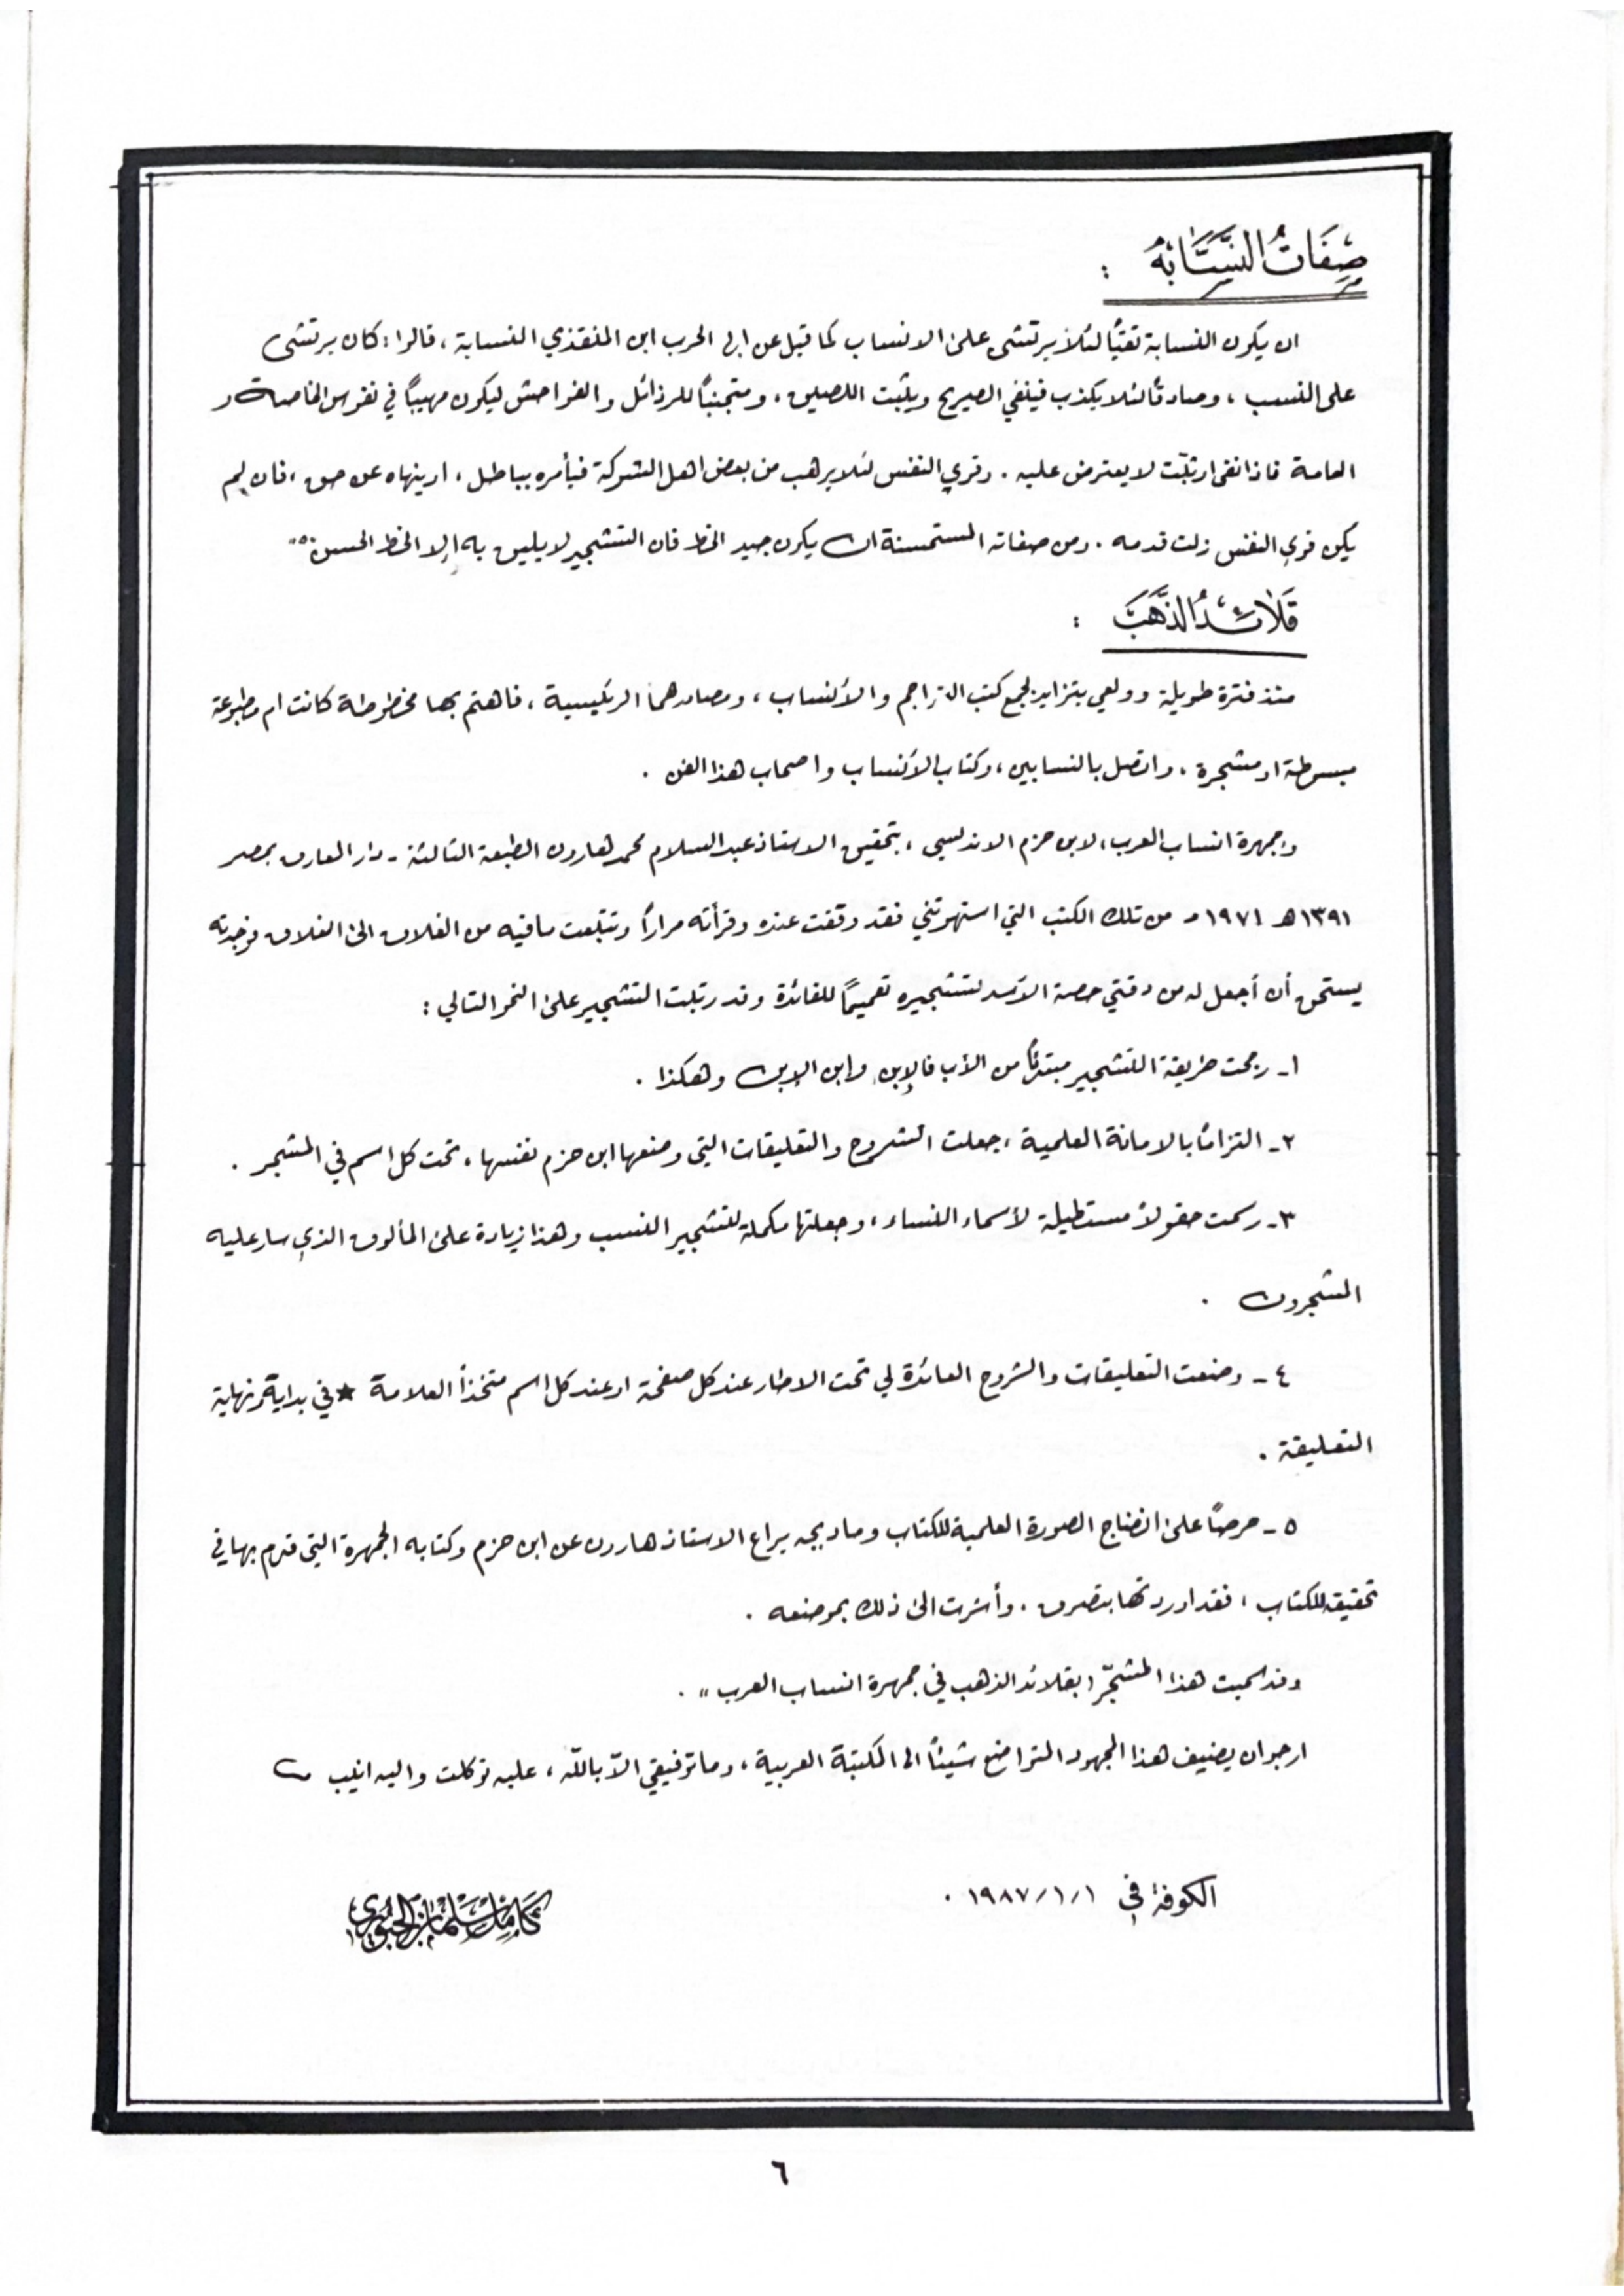 صِفَاتُ النسَّابَةُ :
ان يكون النسابة تقيّاً لئلا يرتشى على الانساب كما قيل عن ابي الحرب ابن المنقذي النسابة، قالوا: كان يرتشى
على النسب، وصادقاً لئلا يكذب فينفي الصريح ويثبت اللصيق، ومتجنباً للرذائل والفواحش ليكون مهيباً في نفوس الخاصة و
العامة فاذا نفى او ثبّت لا يعترض عليه. وقوي النفس لئلا يرهب من بعض اهل الشوكة فيأمره بباطل، او ينهاه عن حق، فان لم
يكن قوي النفس زلت قدمه. ومن صفاته المستحسنة ان يكون جيد الخط فان التشجير لا يليق به إلا الخط الحسن"
قَلَائِدُ الذَّهَبْ :
منذ فترة طويلة وولعي يتزايد لجمع كتب التراجم والأنساب، ومصادرهما الرئيسية، فاهتم بها مخطوطة كانت ام مطبوعة
مبسوطة او مشجرة، واتصل بالنسابين، وكتاب الأنساب واصحاب هذا الفن .
وجمهرة انساب العرب، لابن حزم الاندلسي، بتحقيق الاستاذ عبد السلام محمد هارون الطبعة الثالثة - دار المعارف بمصر
١٣٩١ هـ ١٩٧١ م من تلك الكتب التي استهوتني فقد وقفت عنده وقرأته مراراً وتتبعت ما فيه من الغلاف الى الغلاف فوجدته
يستحق أن أجعل له من وقتي حصة الأسد لتشجيره تعميماً للفائدة وقد رتبت التشجير على النحو التالي :
١- رجحت طريقة التشجير مبتدئاً من الأب فالإبن وابن الإبن وهكذا .
٢- التزاماً بالامانة العلمية، جعلت الشروح والتعليقات التي وضعها ابن حزم نفسها، تحت كل اسم في المشجر .
٣- رسمت حقولاً مستطيلة لأسماء النساء، وجعلتها مكملة لتشجير النسب وهذا زيادة على المألوف الذي سار عليه
المشجرون .
٤- وضعت التعليقات والشروح العائدة لي تحت الاطار عند كل صفحة او عند كل اسم متخذاً العلامة ★ في بداية ونهاية
التعليقة .
٥- حرصاً على انضاج الصورة العلمية للكتاب وما دبجه يراع الاستاذ هارون عن ابن حزم وكتابه الجمهرة التي قدم بها في
تحقيقه للكتاب، فقد اوردتها بتصرف، وأشرت الى ذلك بموضعه .
وقد سميت هذا المشجّر "بقلائد الذهب في جمهرة انساب العرب" .
ارجو ان يضيف هذا المجهود المتواضع شيئاً الى المكتبة العربية، وما توفيقي الاّ باللّه، عليه توكلت واليه انيب
الكوفة في ١/١/١٩٨٧ .
كامل سلمان الجبوري
٦